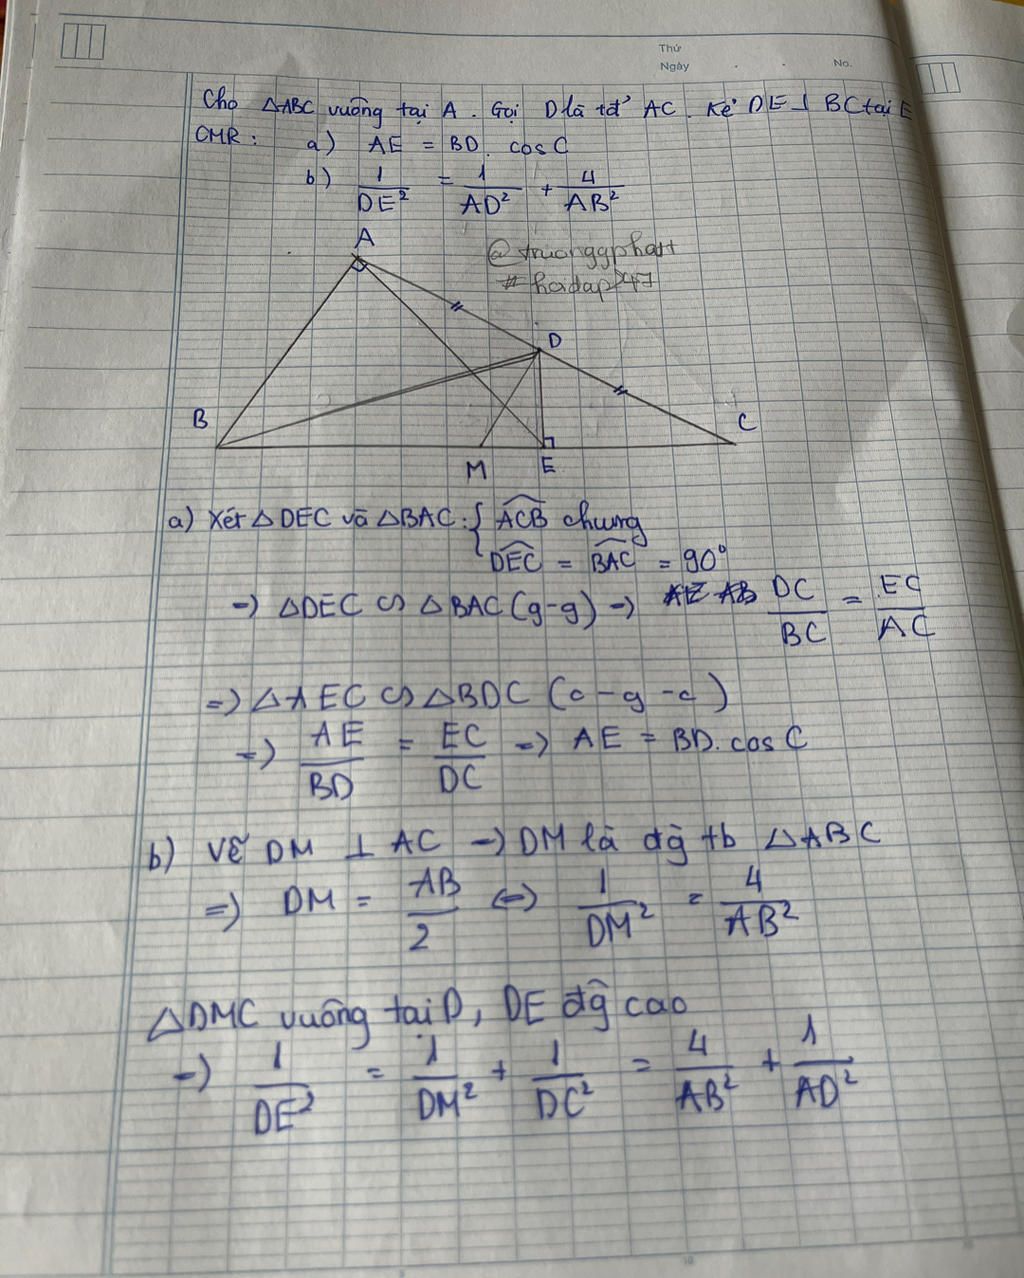 Thứ
Ngày . . No.
Cho △ABC vuông tại A. Gọi D là tđ' AC. Kẻ DE ⊥ BC tại E
CMR: a) AE = BD. cos C
b) 1/DE² = 1/AD² + 4/AB²
A
@truonggphatt
#hoidap247
D
B
C
M
E
a) Xét △DEC và △BAC: { ACB chung
DEC = BAC = 90°
→) △DEC ∽ △BAC (g-g) →) DC/BC = EC/AC
=) △AEC ∽ △BDC (c-g-c)
→) AE/BD = EC/DC =) AE = BD. cos C
b) Vẽ DM ⊥ AC →) DM là đg tb △ABC
=) DM = AB/2 (=) 1/DM² = 4/AB²
△DMC vuông tại D, DE đg cao
→) 1/DE² = 1/DM² + 1/DC² = 4/AB² + 1/AD²